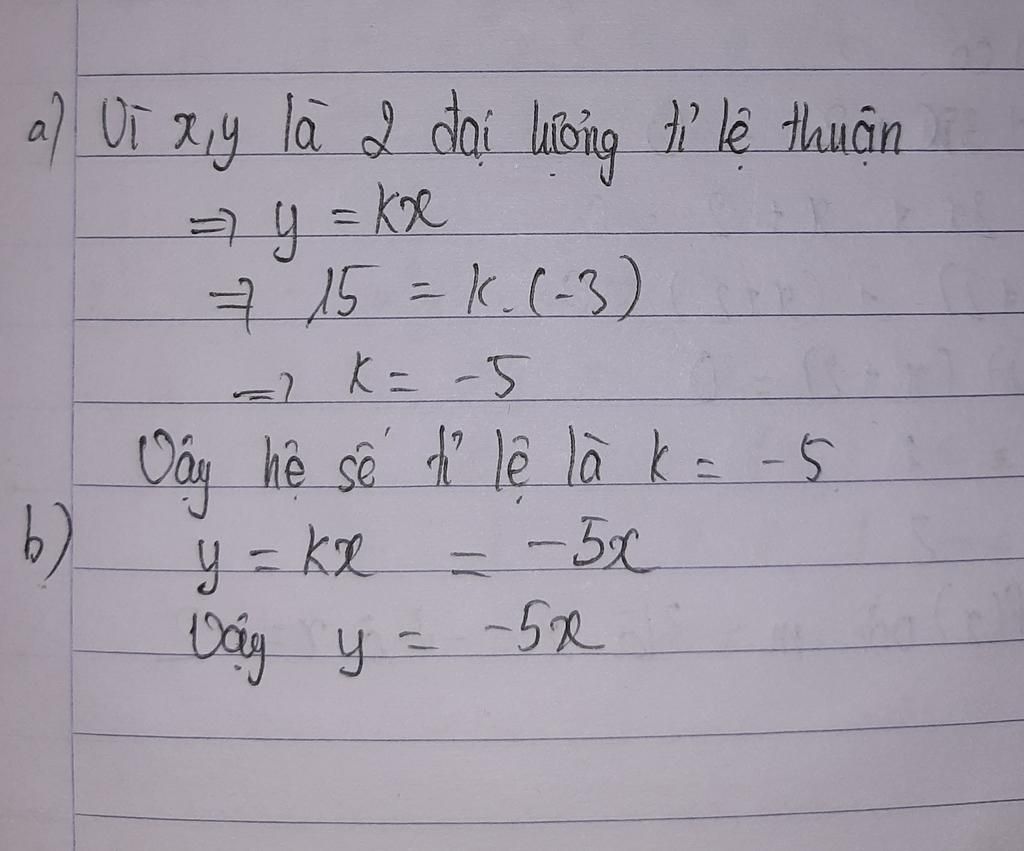 a) Vì x,y là 2 đại lượng tỉ lệ thuận
⇒ y = kx
⇒ 15 = k.(-3)
⇒ k = -5
Vậy hệ số tỉ lệ là k = -5
b) y = kx = -5x
Vậy y = -5x